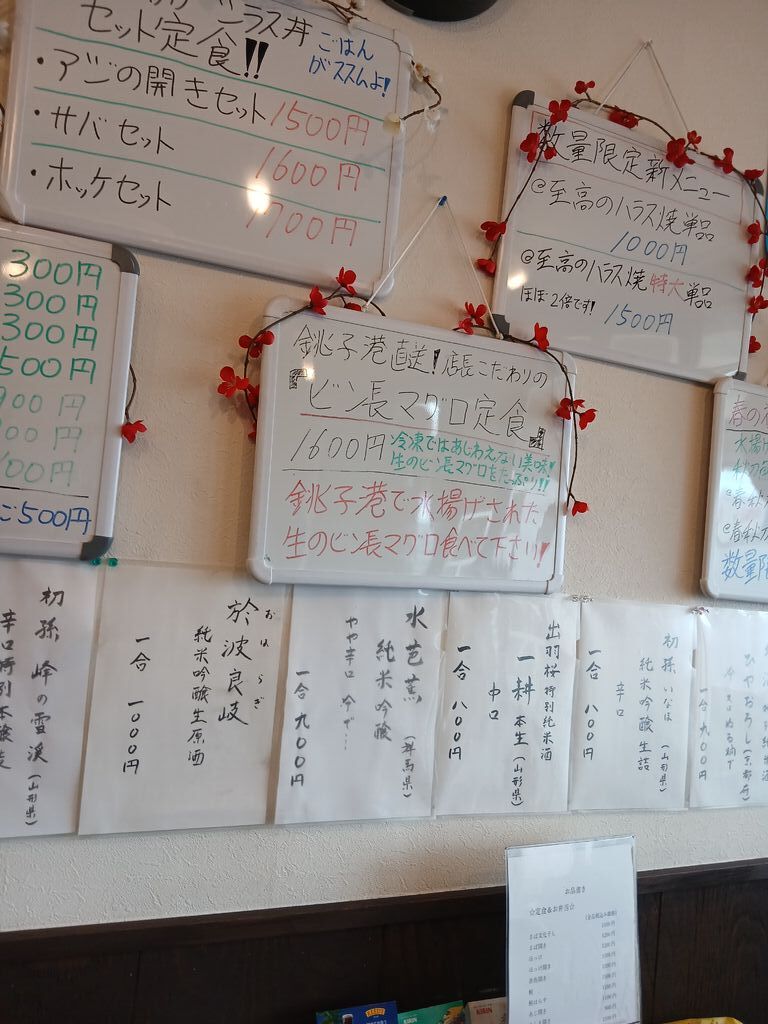 ハラス丼
セット定食!!
ごはん
がススムよ!
・アジの開きセット 1500円
・サバセット 1600円
・ホッケセット 1700円
数量限定新メニュー
@至高のハラス焼単品
1000円
@至高のハラス焼特大単品
ほぼ2倍です! 1500円
300円
300円
300円
500円
500円
銚子港直送!店長こだわりの
ビン長マグロ定食
1600円 冷凍ではあじわえない美味!
生のビン長マグロをたっぷり!!
銚子港で水揚げされた
生のビン長マグロ食べて下さい!
春の
水揚げ
@春秋
数量限
初孫 峰の雪渓 (山形県)
辛口特別本醸造
於波良岐
おはらぎ
純米吟醸生原酒
一合 一〇〇〇円
水芭蕉 (群馬県)
純米吟醸
やや辛口
一合 九〇〇円
出羽桜 特別純米酒
一耕 本生 (山形県)
中口
一合 八〇〇円
初孫 いなほ (山形県)
純米吟醸 生詰
辛口
一合 八〇〇円
ひやおろし (京都府)
一合 九〇〇円
お品書き
☆定食&お弁当☆
KIRIN
KIRIN